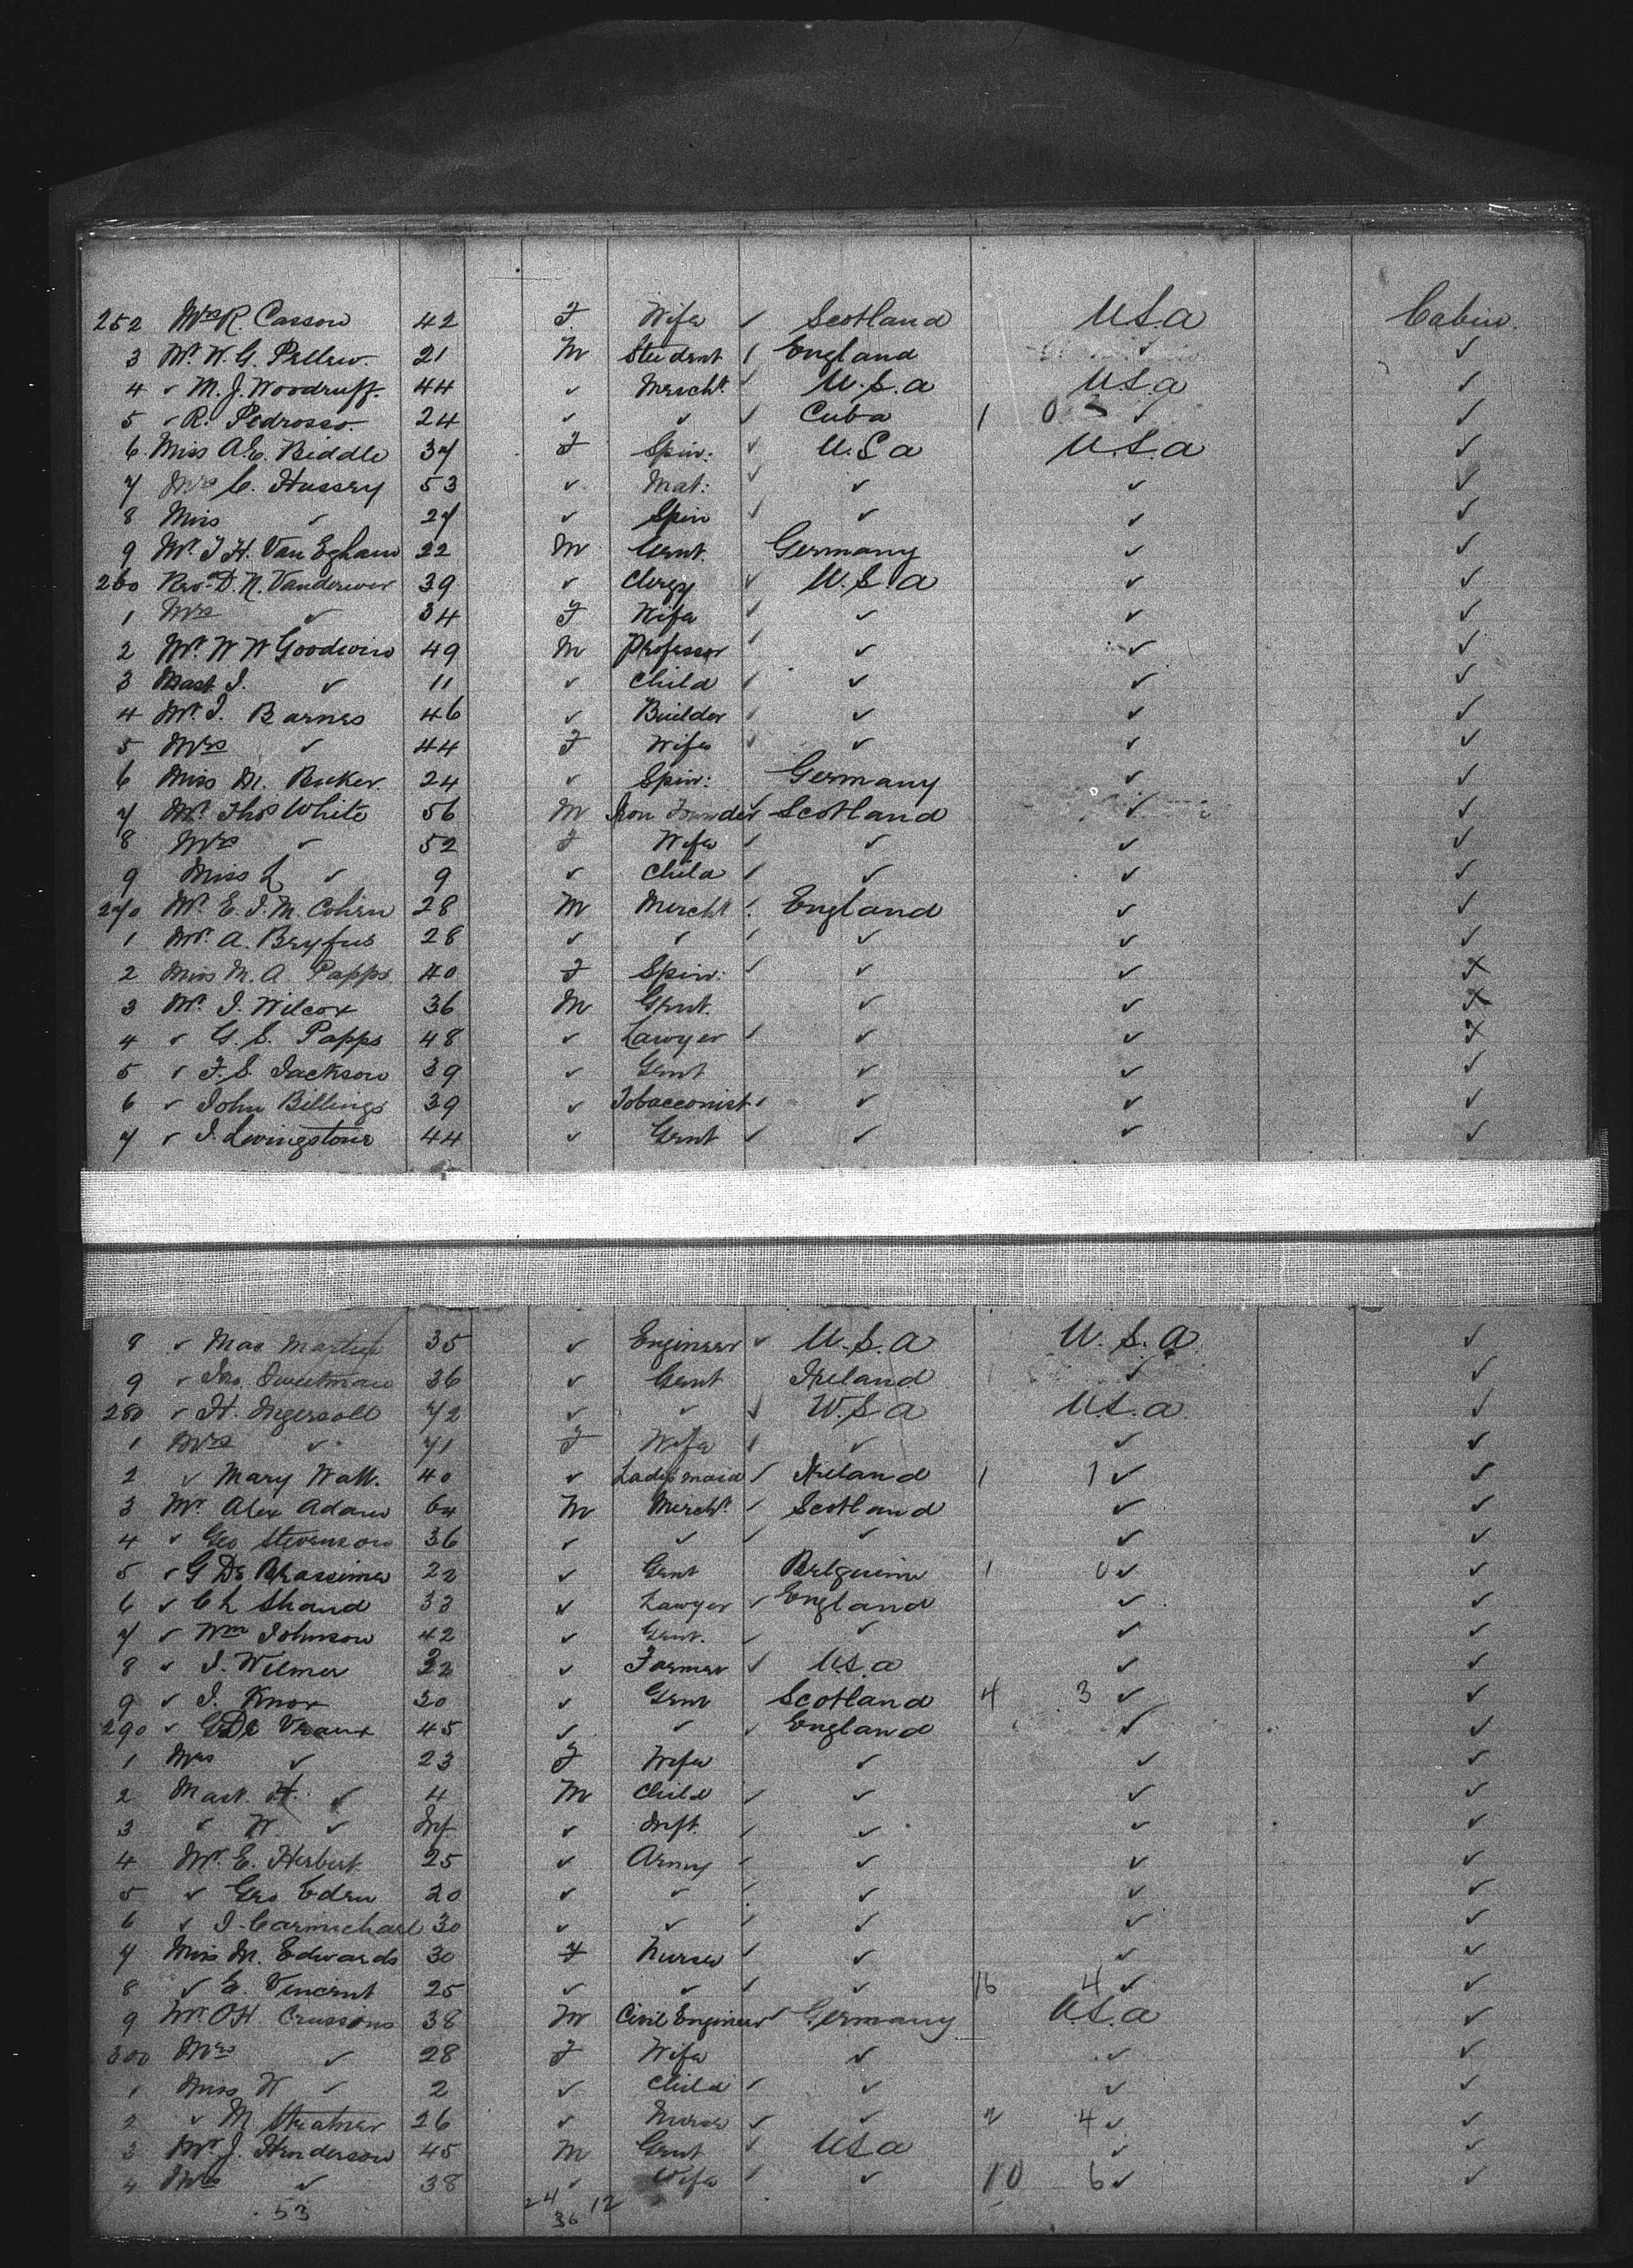 252 Mrs R. Casson 42 F. Wife ✓ Scotland U.S.a Cabin.
3 Mr. W. G. Pellew. 21 M Student ✓ England ✓ ✓
4 ✓ M. J. Woodruff. 44 ✓ Mercht. ✓ U.S.a U.S.a ✓
5 ✓ R. Pedrosso. 24 ✓ ✓ ✓ Cuba 1 0 ✓ ✓
6 Miss A.E. Biddle 37 F Spin: ✓ U.S.a U.S.a ✓
7 Mrs C. Hussey 53 ✓ Mat: ✓ ✓ ✓ ✓
8 Miss ✓ 27 ✓ Spin ✓ ✓ ✓ ✓
9 Mr. J H. Van Egham 22 M Gent. Germany ✓ ✓
260 Rev. D. N. Vanderver 39 ✓ Clergy ✓ U.S.a ✓ ✓
1 Mrs ✓ 34 F Wife ✓ ✓ ✓ ✓
2 Mr. W W Goodwin 49 M Professor ✓ ✓ ✓ ✓
3 Mast J. ✓ 11 ✓ Child ✓ ✓ ✓ ✓
4 Mr. J. Barnes 46 ✓ Builder ✓ ✓ ✓ ✓
5 Mrs ✓ 44 F Wife ✓ ✓ ✓ ✓
6 Miss M. Beeker. 24 ✓ Spin: Germany ✓ ✓
7 Mr. Thos White 56 M Iron Founder ✓ Scotland ✓ ✓
8 Mrs ✓ 52 F Wife ✓ ✓ ✓ ✓
9 Miss L ✓ 9 ✓ Child ✓ ✓ ✓ ✓
270 Mr. E. J. M. Cohen 28 M Mercht. ✓ England ✓ ✓
1 Mr. A. Bryfus 28 ✓ ✓ ✓ ✓ ✓ ✓
2 Miss M. A. Papps. 40 F Spin: ✓ ✓ ✓ X
3 Mr. J. Wilcox 36 M Gent. ✓ ✓ X
4 ✓ G. S. Papps 48 ✓ Lawyer ✓ ✓ ✓ X
5 ✓ F. S. Jackson 39 ✓ Gent ✓ ✓ ✓
6 ✓ John Billings 39 ✓ Tobacconist ✓ ✓ ✓ ✓
7 ✓ J. Livingstone 44 ✓ Gent ✓ ✓ ✓ ✓
8 ✓ Mac Martin 35 ✓ Engineer ✓ U.S.a U.S.a ✓
9 ✓ Jno. Sweetman 36 ✓ Gent Ireland ✓ ✓
280 ✓ H. Ingersoll 72 ✓ ✓ ✓ U.S.a U.S.a. ✓
1 Mrs ✓ 71 F Wife ✓ ✓ ✓ ✓
2 ✓ Mary Watt. 40 ✓ Ladys maid ✓ Ireland 1 1 ✓ ✓
3 Mr. Alex Adam 64 M Mercht. ✓ Scotland ✓ ✓
4 ✓ Geo Stevenson 36 ✓ ✓ ✓ ✓ ✓ ✓
5 ✓ G De 22 ✓ Gent Belguim 1 0 ✓ ✓
6 ✓ Ch Shand 33 ✓ Lawyer ✓ England ✓ ✓
7 ✓ Wm Johnson 42 ✓ Gent. ✓ ✓ ✓ ✓
8 ✓ J. Wilmer 22 ✓ Farmer ✓ U.S.a ✓ ✓
9 ✓ J. Knox 30 ✓ Gent Scotland 4 3 ✓ ✓
290 ✓ G De Veaux 45 ✓ ✓ ✓ England ✓ ✓
1 Mrs ✓ 23 F Wife ✓ ✓ ✓
2 Mast. H. ✓ 4 M Child ✓ ✓ ✓ ✓
3 ✓ W. ✓ Inf. ✓ Inft. ✓ ✓ ✓ ✓
4 Mr. E. Herbert 25 ✓ Army ✓ ✓ ✓ ✓
5 ✓ Geo Eden 20 ✓ ✓ ✓ ✓ ✓ ✓
6 ✓ J. Carmichael 30 ✓ ✓ ✓ ✓ ✓ ✓
7 Miss M. Edwards 30 F Nurse ✓ ✓ ✓ ✓
8 ✓ E. Vincent 25 ✓ ✓ ✓ ✓ 16 4 ✓ ✓
9 Mr. O H. Crussins 38 M Civil Engineer ✓ Germany U.S.a ✓
300 Mrs ✓ 28 F Wife ✓ ✓ ✓
1 Miss W ✓ 2 ✓ Child ✓ ✓ ✓ ✓
2 ✓ M. 26 ✓ Nurse ✓ ✓ 2 4 ✓ ✓
3 Mr. J. Henderson 45 M Gent ✓ U.S.a ✓ ✓
4 Mrs ✓ 38 ✓ Wife ✓ ✓ 10 6 ✓ ✓
53 24 12
36